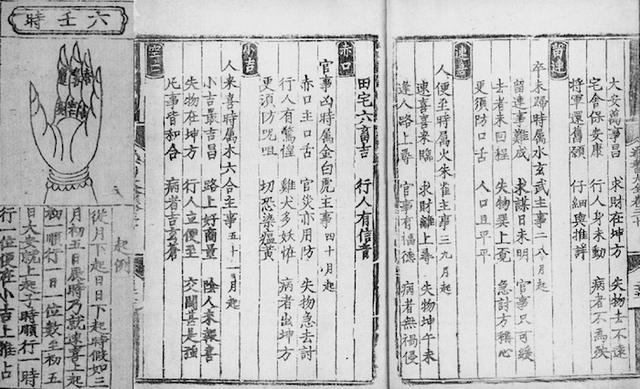 大安萬事昌　求財在坤方　失物去不遠
宅舍保安康　行人身未動　病者不爲殃
將軍還舊願　仔細與推詳
留連
卒未歸時屬水玄武主事二八月起
留連事難成　求謀日未明　官事只可緩
去者未回程　失物巽上覓　急討方穩心
更須防口舌　人口且平平
速喜
人便至時屬火朱雀主事三九月起
速喜喜來臨　求財離上尋　失物坤午未
逢人路上尋　官事有福德　病者無禍侵
田宅六畜吉　行人有信音
赤口
官事凶時屬金白虎主事四十月起
赤口主口舌　官災亦用防　失物急去討
行人有驚惶　雞犬多妖怪　病者出坤方
更須防咒咀　切恐染瘟黃
小吉
人來喜時屬木六合主事五十一月起
小吉最吉昌　路上好商量　陰人來報喜
失物在坤方　行人立便至　交關甚是強
凡事皆和合　病者告玄蒼
空亡
六壬時
起例
從月下起日日下起時假如三
月初五日辰時乃就速喜上起
初一順行一日一位數至初五
日大安就上起子時順行一時
行一位便在小吉上推占